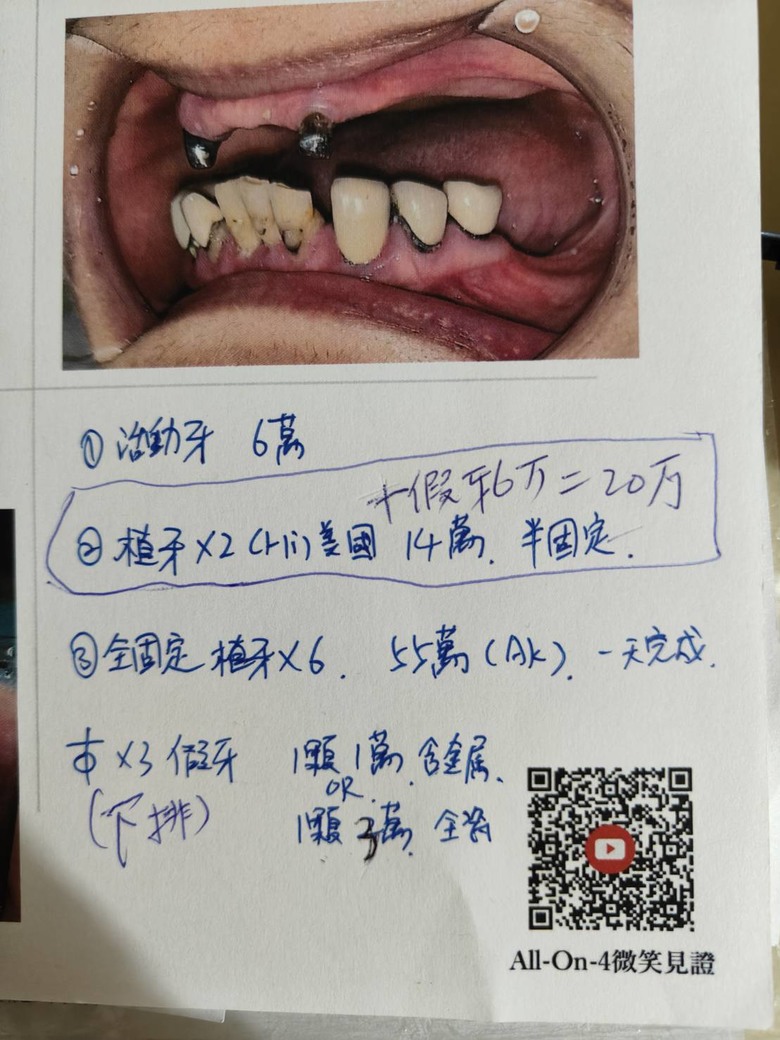 ①活動牙 6萬
+假牙6万=20万
②植牙×2(Hi)美國 14萬. 半固定.
③全固定 植牙×6. 55萬(AK). 一天完成.
×3 假牙 1顆1萬 含金属.
OR.
(下排) 1顆3萬 全瓷
All-On-4微笑見證